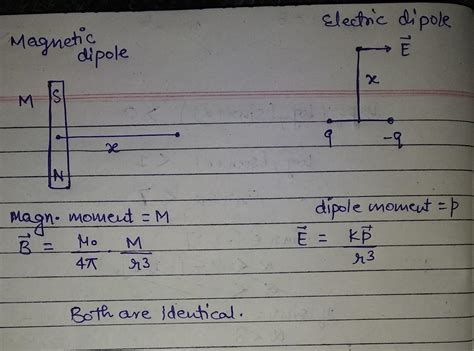 Magnetic dipole
Electric dipole
E⃗
M
S
x
N
x
q
-q
Magn. moment = M
dipole moment = p
B⃗ = μ₀/4π . M/r³
E⃗ = Kp⃗/r³
Both are identical.